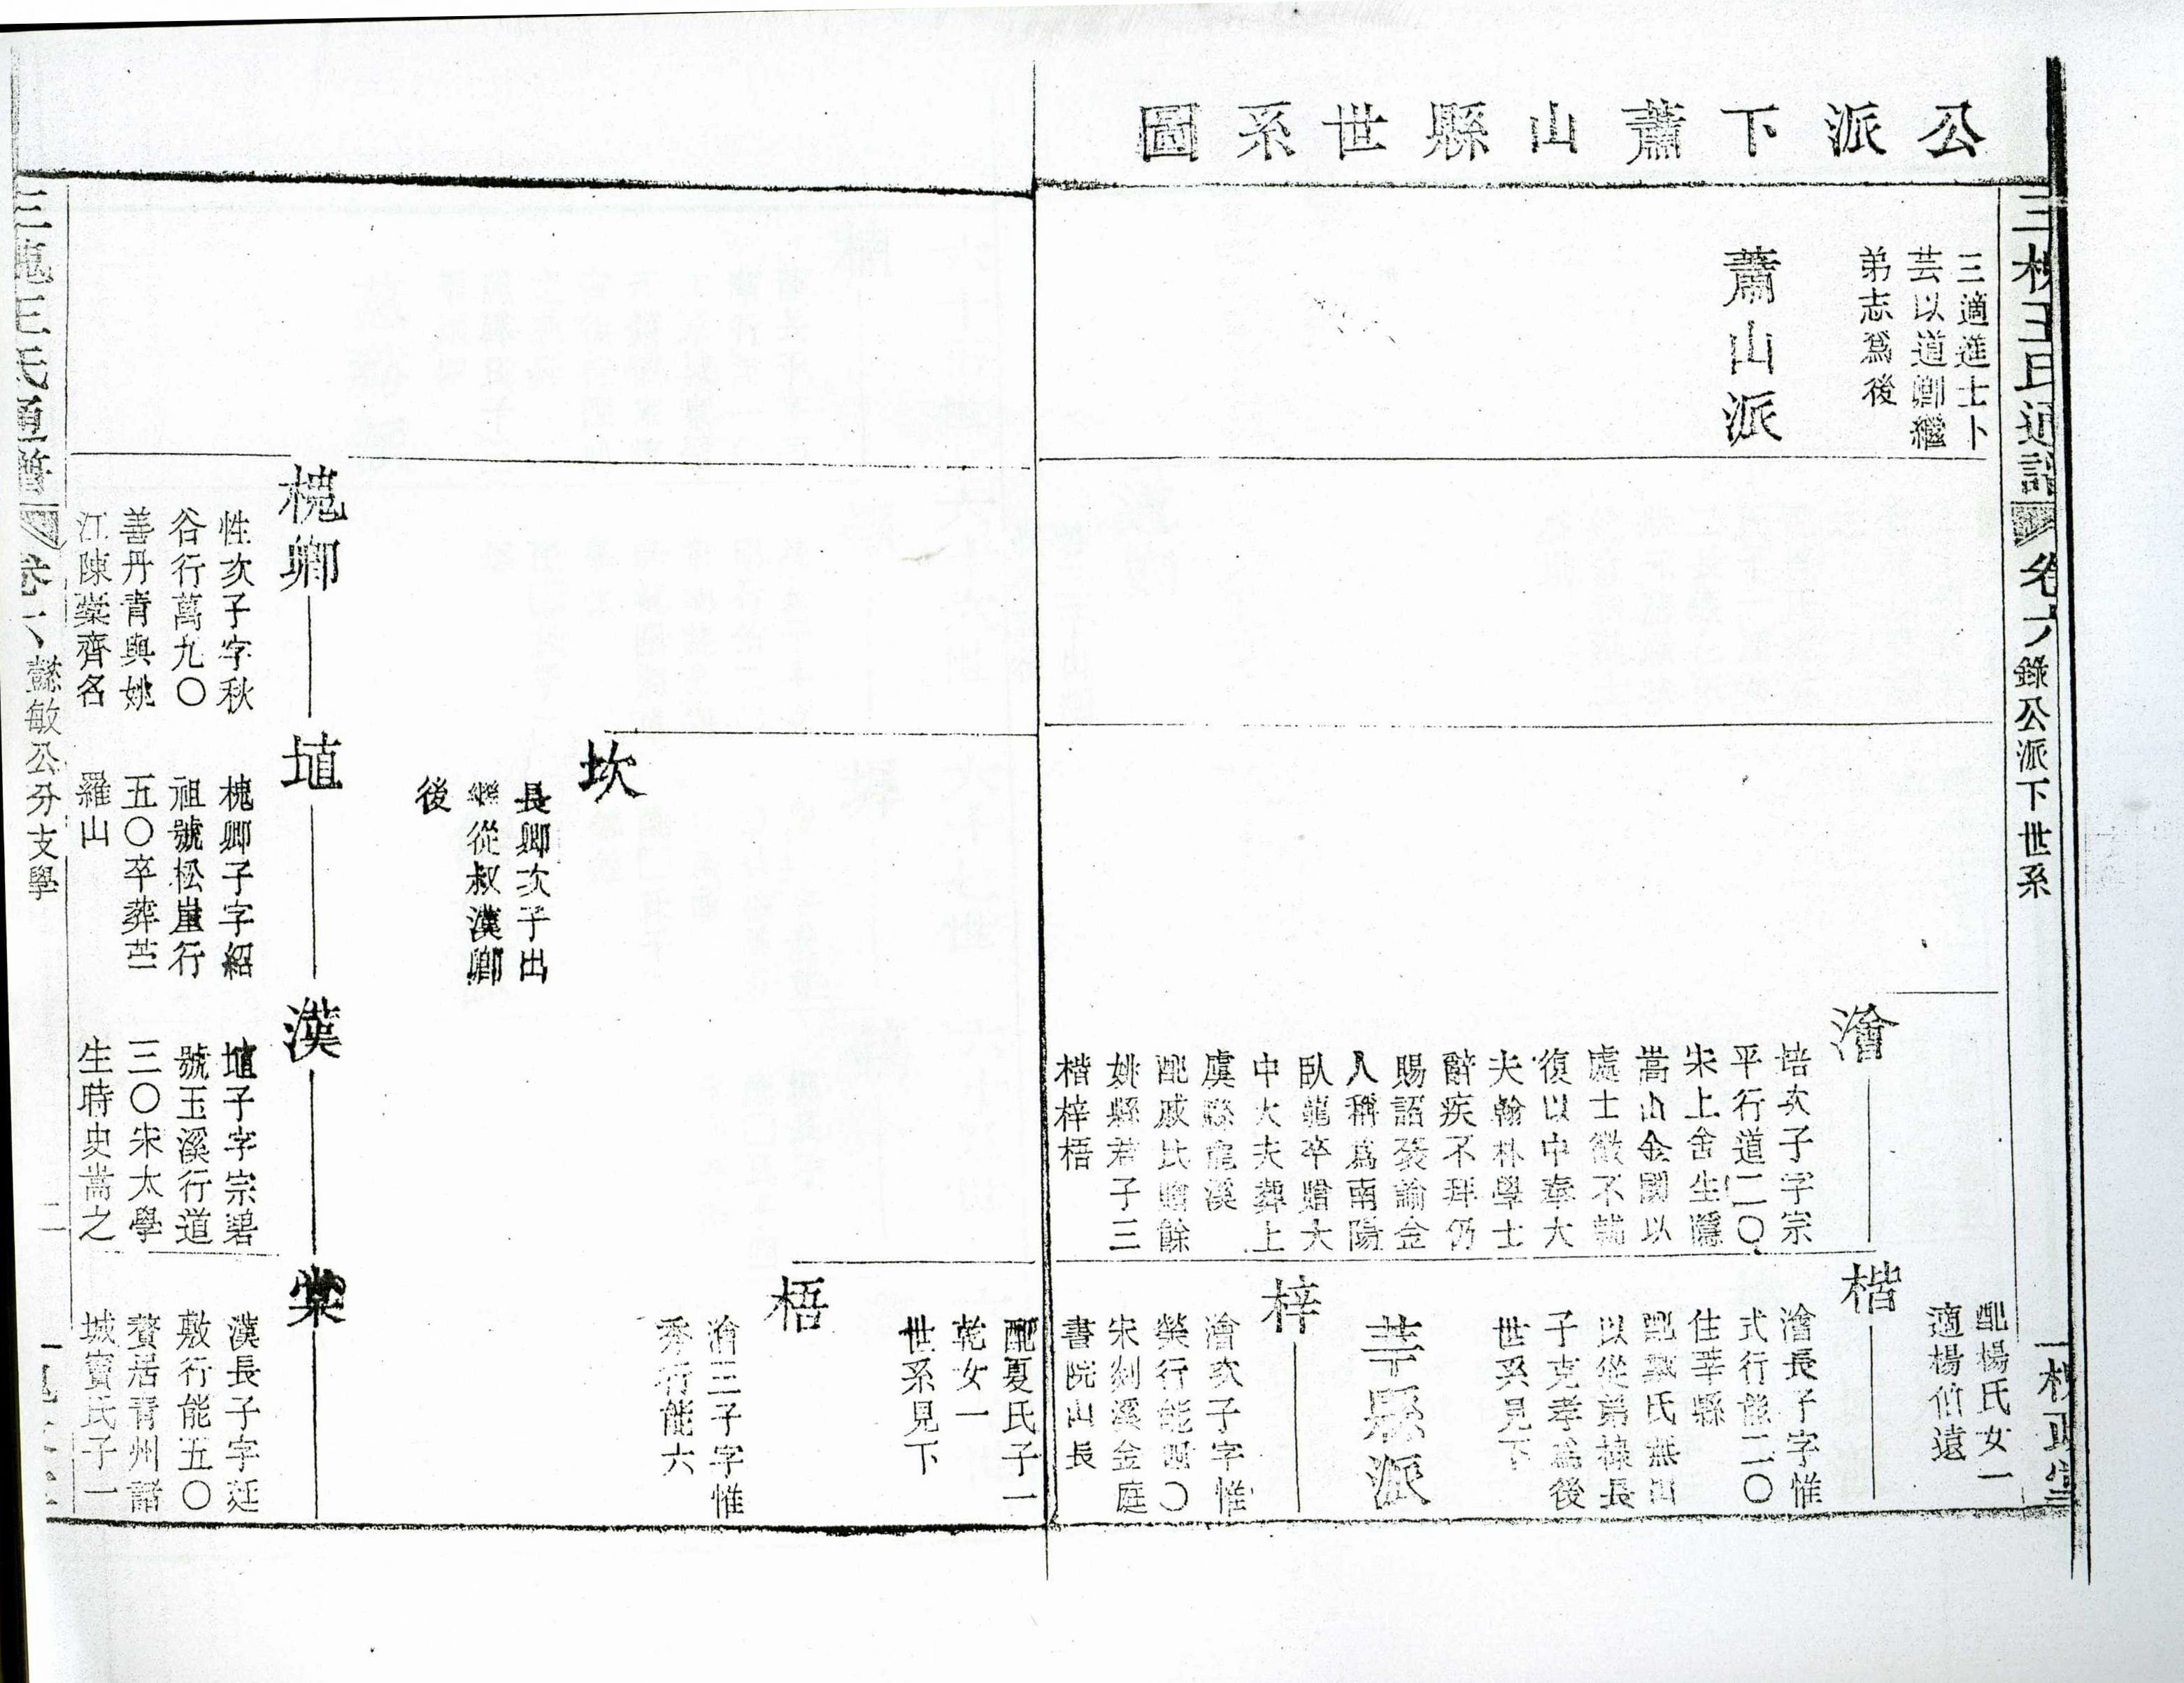 公派下蕭山縣世系圖
三槐王氏通譜
卷六
錄公派下世系
一槐堂
三適進士卜
芸以道卿繼
弟志爲後
蕭山派
配楊氏女一
適楊伯遠
澮
培次子字宗
平行道二〇
宋上舍生隱
嵩山金國以
處士徵不就
復以中奉大
夫翰林學士
辭疾不拜仍
賜詔褒諭金
人稱爲南陽
臥龍卒贈大
中大夫葬上
虞縣龍溪
配戚氏贈餘
姚縣君子三
楷梓梧
楷
澮長子字惟
式行能二〇
住莘縣
配戴氏無出
以從弟椂長
子克孝爲後
世系見下
莘縣派
梓
澮次子字惟
榮行能四〇
宋剡溪金庭
書院山長
配夏氏子一
乾女一
世系見下
梧
澮三子字惟
秀行能六
坎
長卿次子出
繼從叔漢卿
後
槐卿
性次子字秋
谷行萬九〇
善丹青與姚
江陳棠齊名
埴
槐卿子字紹
祖號松崖行
五〇卒葬苎
羅山
漢
埴子字宗碧
號玉溪行道
三〇宋太學
生時史嵩之
棠
漢長子字廷
敷行能五〇
贅居青州諸
城竇氏子一
三槐王氏通譜
卷六
懿敏公分支學
二